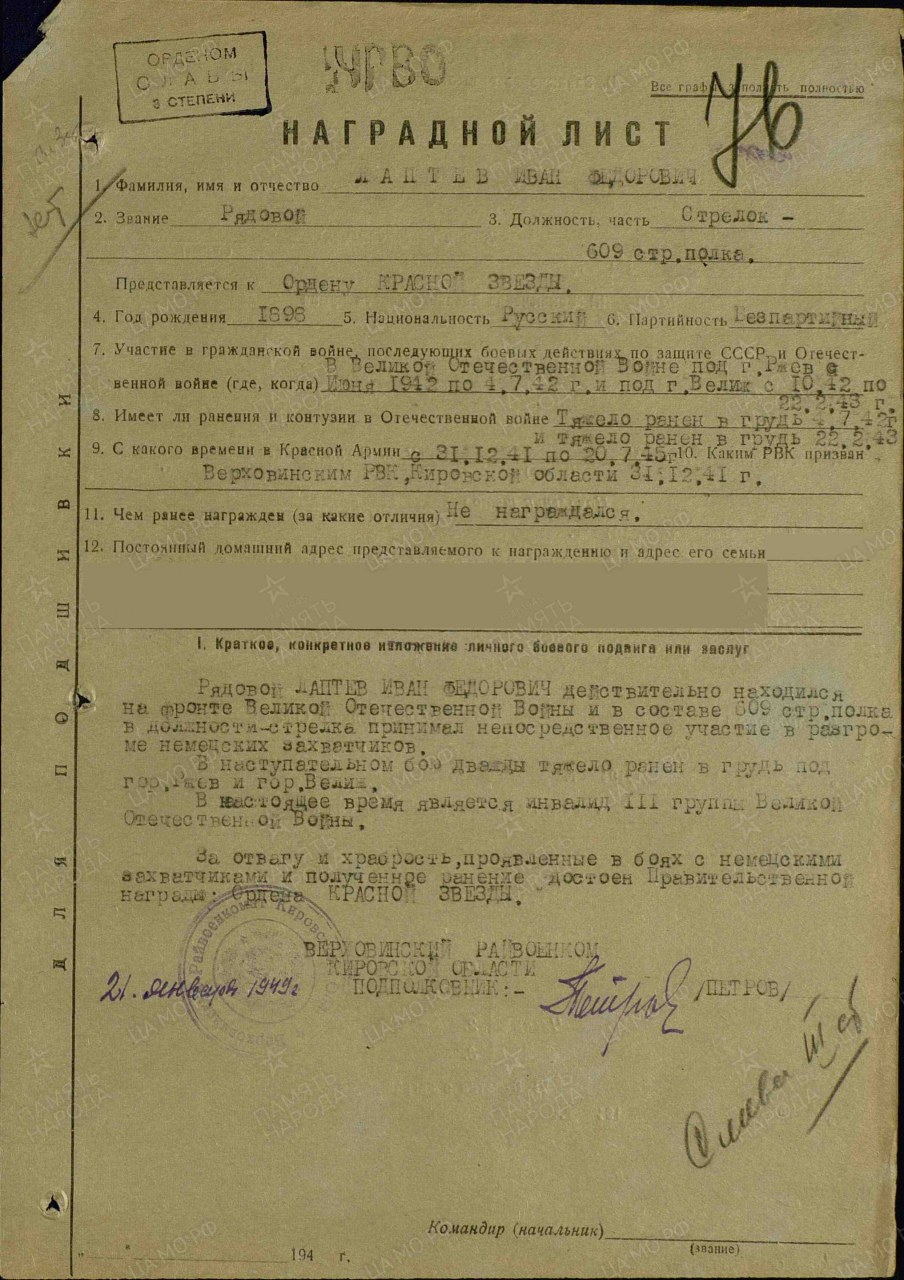 ОРДЕНОМ
СЛАВЫ
3 СТЕПЕНИ
Все графы заполнять полностью
76
НАГРАДНОЙ ЛИСТ
1. Фамилия, имя и отчество ЛАПТЕВ ИВАН ФЕДОРОВИЧ
2. Звание Рядовой 3. Должность, часть Стрелок -
609 стр.полка.
Представляется к Ордену КРАСНОЙ ЗВЕЗДЫ.
4. Год рождения 1898 5. Национальность Русский 6. Партийность Безпартийный
7. Участие в гражданской войне, последующих боевых действиях по защите СССР и Отечест-
В Великой Отечественной Войне под г.Ржев с
венной войне (где, когда) Июня 1942 по 4.7.42 г.и под г.Велиж с 10.42 по
22.2.43 г.
8. Имеет ли ранения и контузии в Отечественной войне Тяжело ранен в грудь 4.7.42г
и тяжело ранен в грудь 22.2.43
9. С какого времени в Красной Армии с 31.12.41 по 20.7.45г 10. Каким РВК призван
Верховинским РВК,Кировской области 31.12.41 г.
11. Чем ранее награжден (за какие отличия) Не награждался.
12. Постоянный домашний адрес представляемого к награждению и адрес его семьи
I. Краткое, конкретное изложение личного боевого подвига или заслуг
Рядовой ЛАПТЕВ ИВАН ФЕДОРОВИЧ действительно находился
на фронте Великой Отечественной Войны и в составе 609 стр.полка
в должности-стрелка принимал непосредственное участие в разгро-
ме немецских захватчиков.
В наступательном бою дважды тяжело ранен в грудь под
гор.Ржев и гор.Велиж.
В настоящее время является инвалид III группы Великой
Отечественной Войны.
За отвагу и храбрость,проявленные в боях с немецскими
захватчиками и полученное ранение достоен Правительственной
награды: Ордена КРАСНОЙ ЗВЕЗДЫ.
ВЕРХОВИНСКИЙ РАЙВОЕНКОМ
КИРОВСКОЙ ОБЛАСТИ
21. января 1949г ПОДПОЛКОВНИК:- Петров /ПЕТРОВ/
Слава III ст
Командир (начальник)
(звание)
" " 194 г.
ДЛЯ ПОДШИВКИ